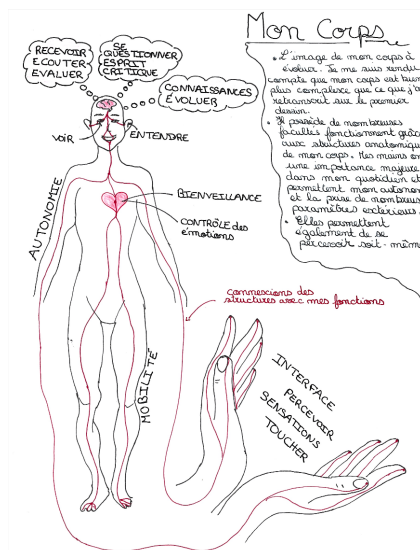 Mon Corps
RECEVOIR
ECOUTER
EVALUER
SE
QUESTIONNER
ESPRIT
CRITIQUE
CONNAISSANCES
ÉVOLUER
VOIR
ENTENDRE
AUTONOMIE
BIENVEILLANCE
CONTRÔLE des
émotions
MOBILITÉ
connexions des
structures avec mes fonctions
INTERFACE
PERCEVOIR
SENSATIONS
TOUCHER
• L'image de mon corps à
évoluer. Je me suis rendu
compte que mon corps est bien
plus complexe que ce que j'
retranscrit sur le premier
dessin.
• Il possède de nombreuses
facultés fonctionnent
aux structures
de mon corps. Mes mains
une importance majeure
dans mon quotidien et
permettent mon
et la prise de
paramètres
• Elles permettent
également de se
percevoir soit-